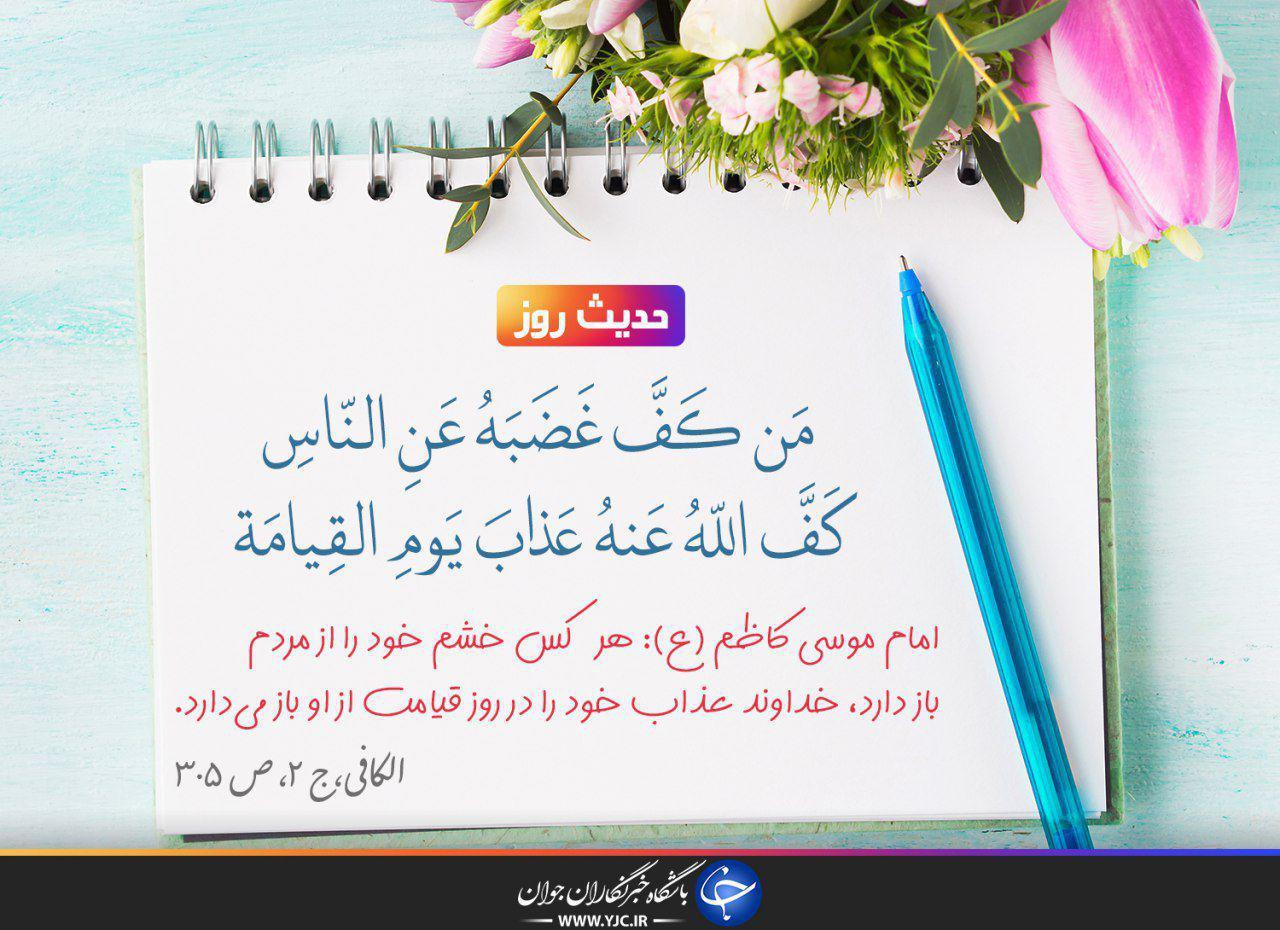 حدیث روز
مَن كَفَّ غَضَبَهُ عَنِ النّاسِ
كَفَّ اللّهُ عَنهُ عَذابَ يَومِ القِيامَة
امام موسی کاظم (ع): هر کس خشم خود را از مردم
باز دارد، خداوند عذاب خود را در روز قیامت از او باز می‌دارد.
الکافی، ج ۲، ص ۳۰۵
باشگاه خبرنگاران جوان
WWW.YJC.IR